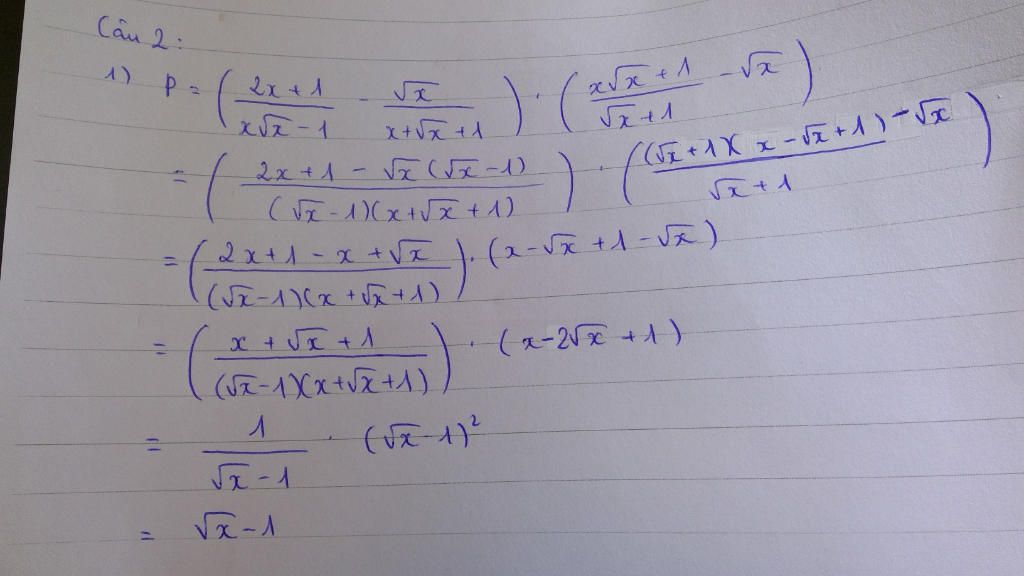 Câu 2:
1) P = ( (2x+1)/(x√x − 1) − √x/(x+√x+1) ) · ( (x√x+1)/(√x+1) − √x )
= ( (2x+1 − √x(√x−1))/((√x−1)(x+√x+1)) ) · ( ((√x+1)(x−√x+1))/(√x+1) − √x )
= ( (2x+1−x+√x)/((√x−1)(x+√x+1)) ) · (x−√x+1−√x)
= ( (x+√x+1)/((√x−1)(x+√x+1)) ) · (x−2√x+1)
= 1/(√x−1) · (√x−1)²
= √x−1